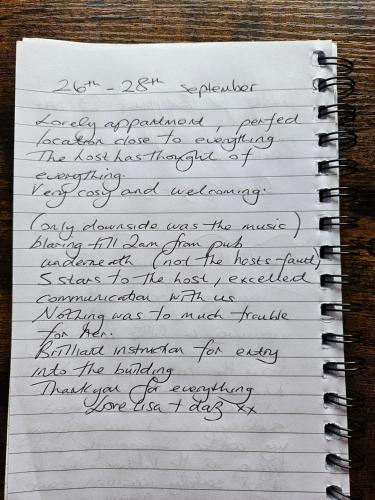 26th - 28th September
Lovely appartment, perfect
location close to everything
The host has thought of
everything.
Very cosy and welcoming.
(only downside was the music)
blaring till 2am from pub
underneath (not the hosts fault)
5 stars to the host, excellent
communication with us
Nothing was to much trouble
for her.
Brilliant instruction for entry
into the building
Thankyou for everything
Love Lisa + daz xx